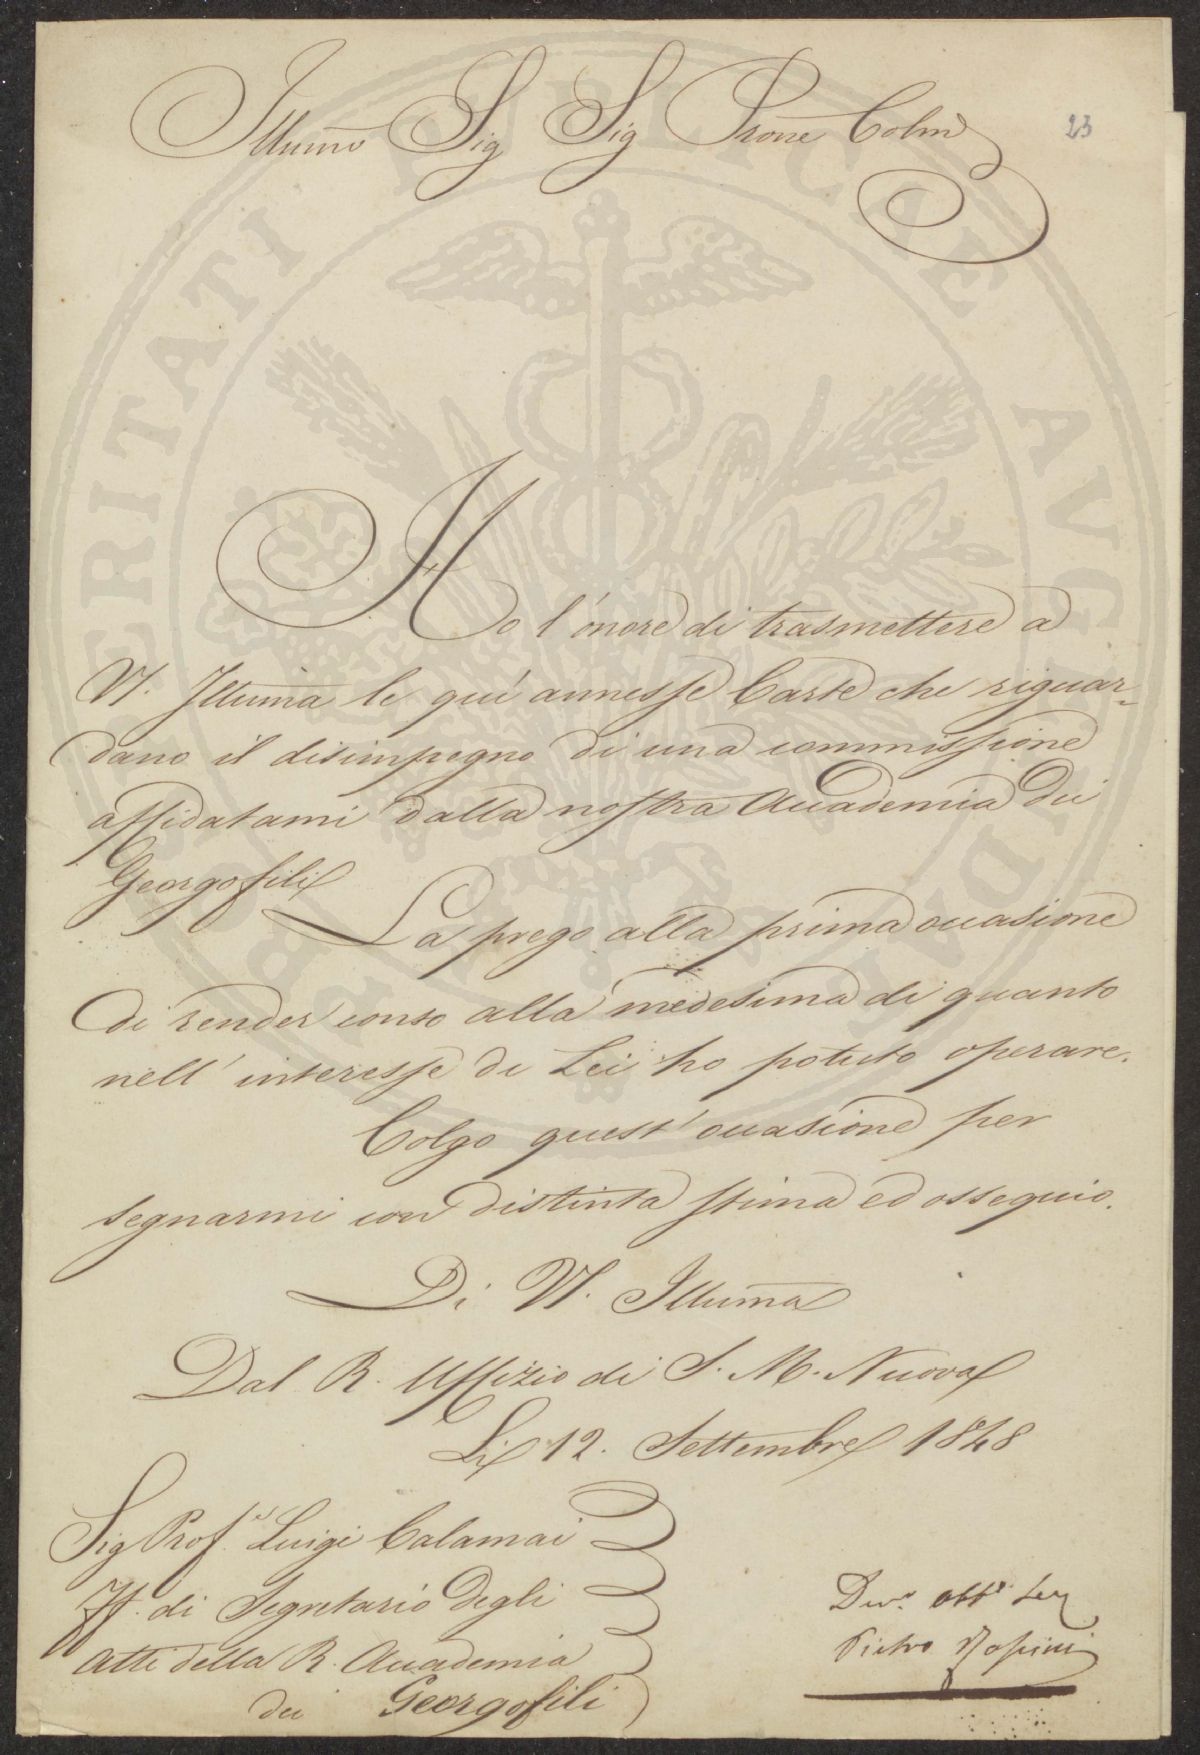 Illumo Sig Sig Prone Colmo
23
Ho l'onore di trasmettere a
VS. Illuma le quì annesse Carte che riguar=
dano il disimpegno di una commissione
affidatami dalla nostra Accademia dei
Georgofili
La prego alla prima occasione
di render conto alla medesima di quanto
nell' interesse di Lei ho potuto operare.
Colgo quest' occasione per
segnarmi con distinta stima ed ossequio.
Di VS. Illuma
Dal R. Uffizio di S. M. Nuova
Li 12. Settembre 1848
Sig Prof.e Luigi Calamai
Ff. di Segretario degli
Atti della R. Accademia
dei Georgofili
Dev.o obb.o Ser
Pietro
PVBLICAE
PROSPERITATI
AVGENDAE